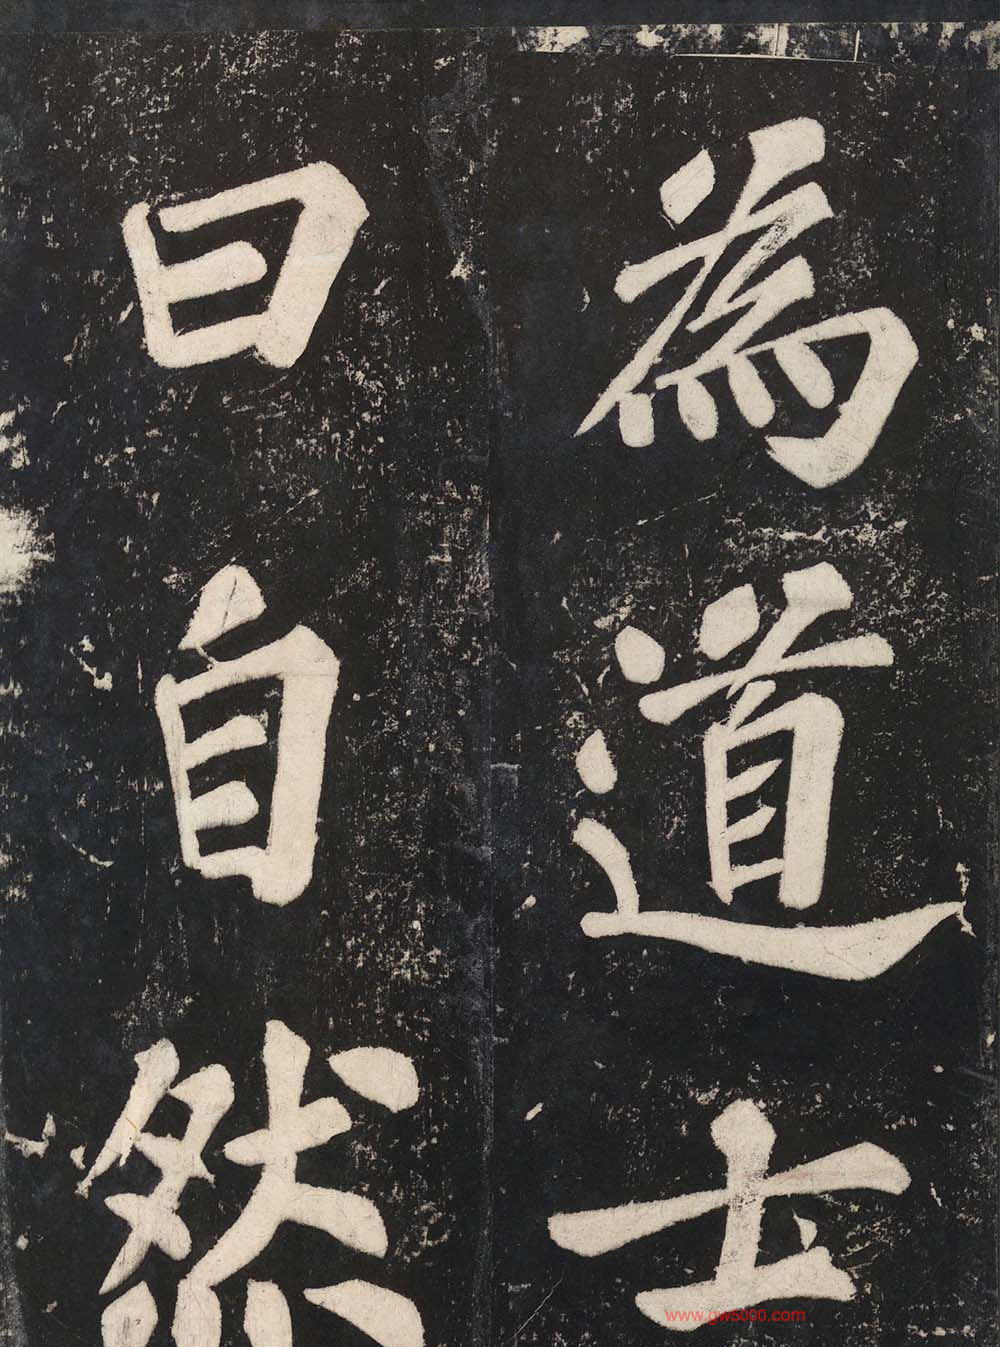 為道士
曰自然
www.gw5000.com